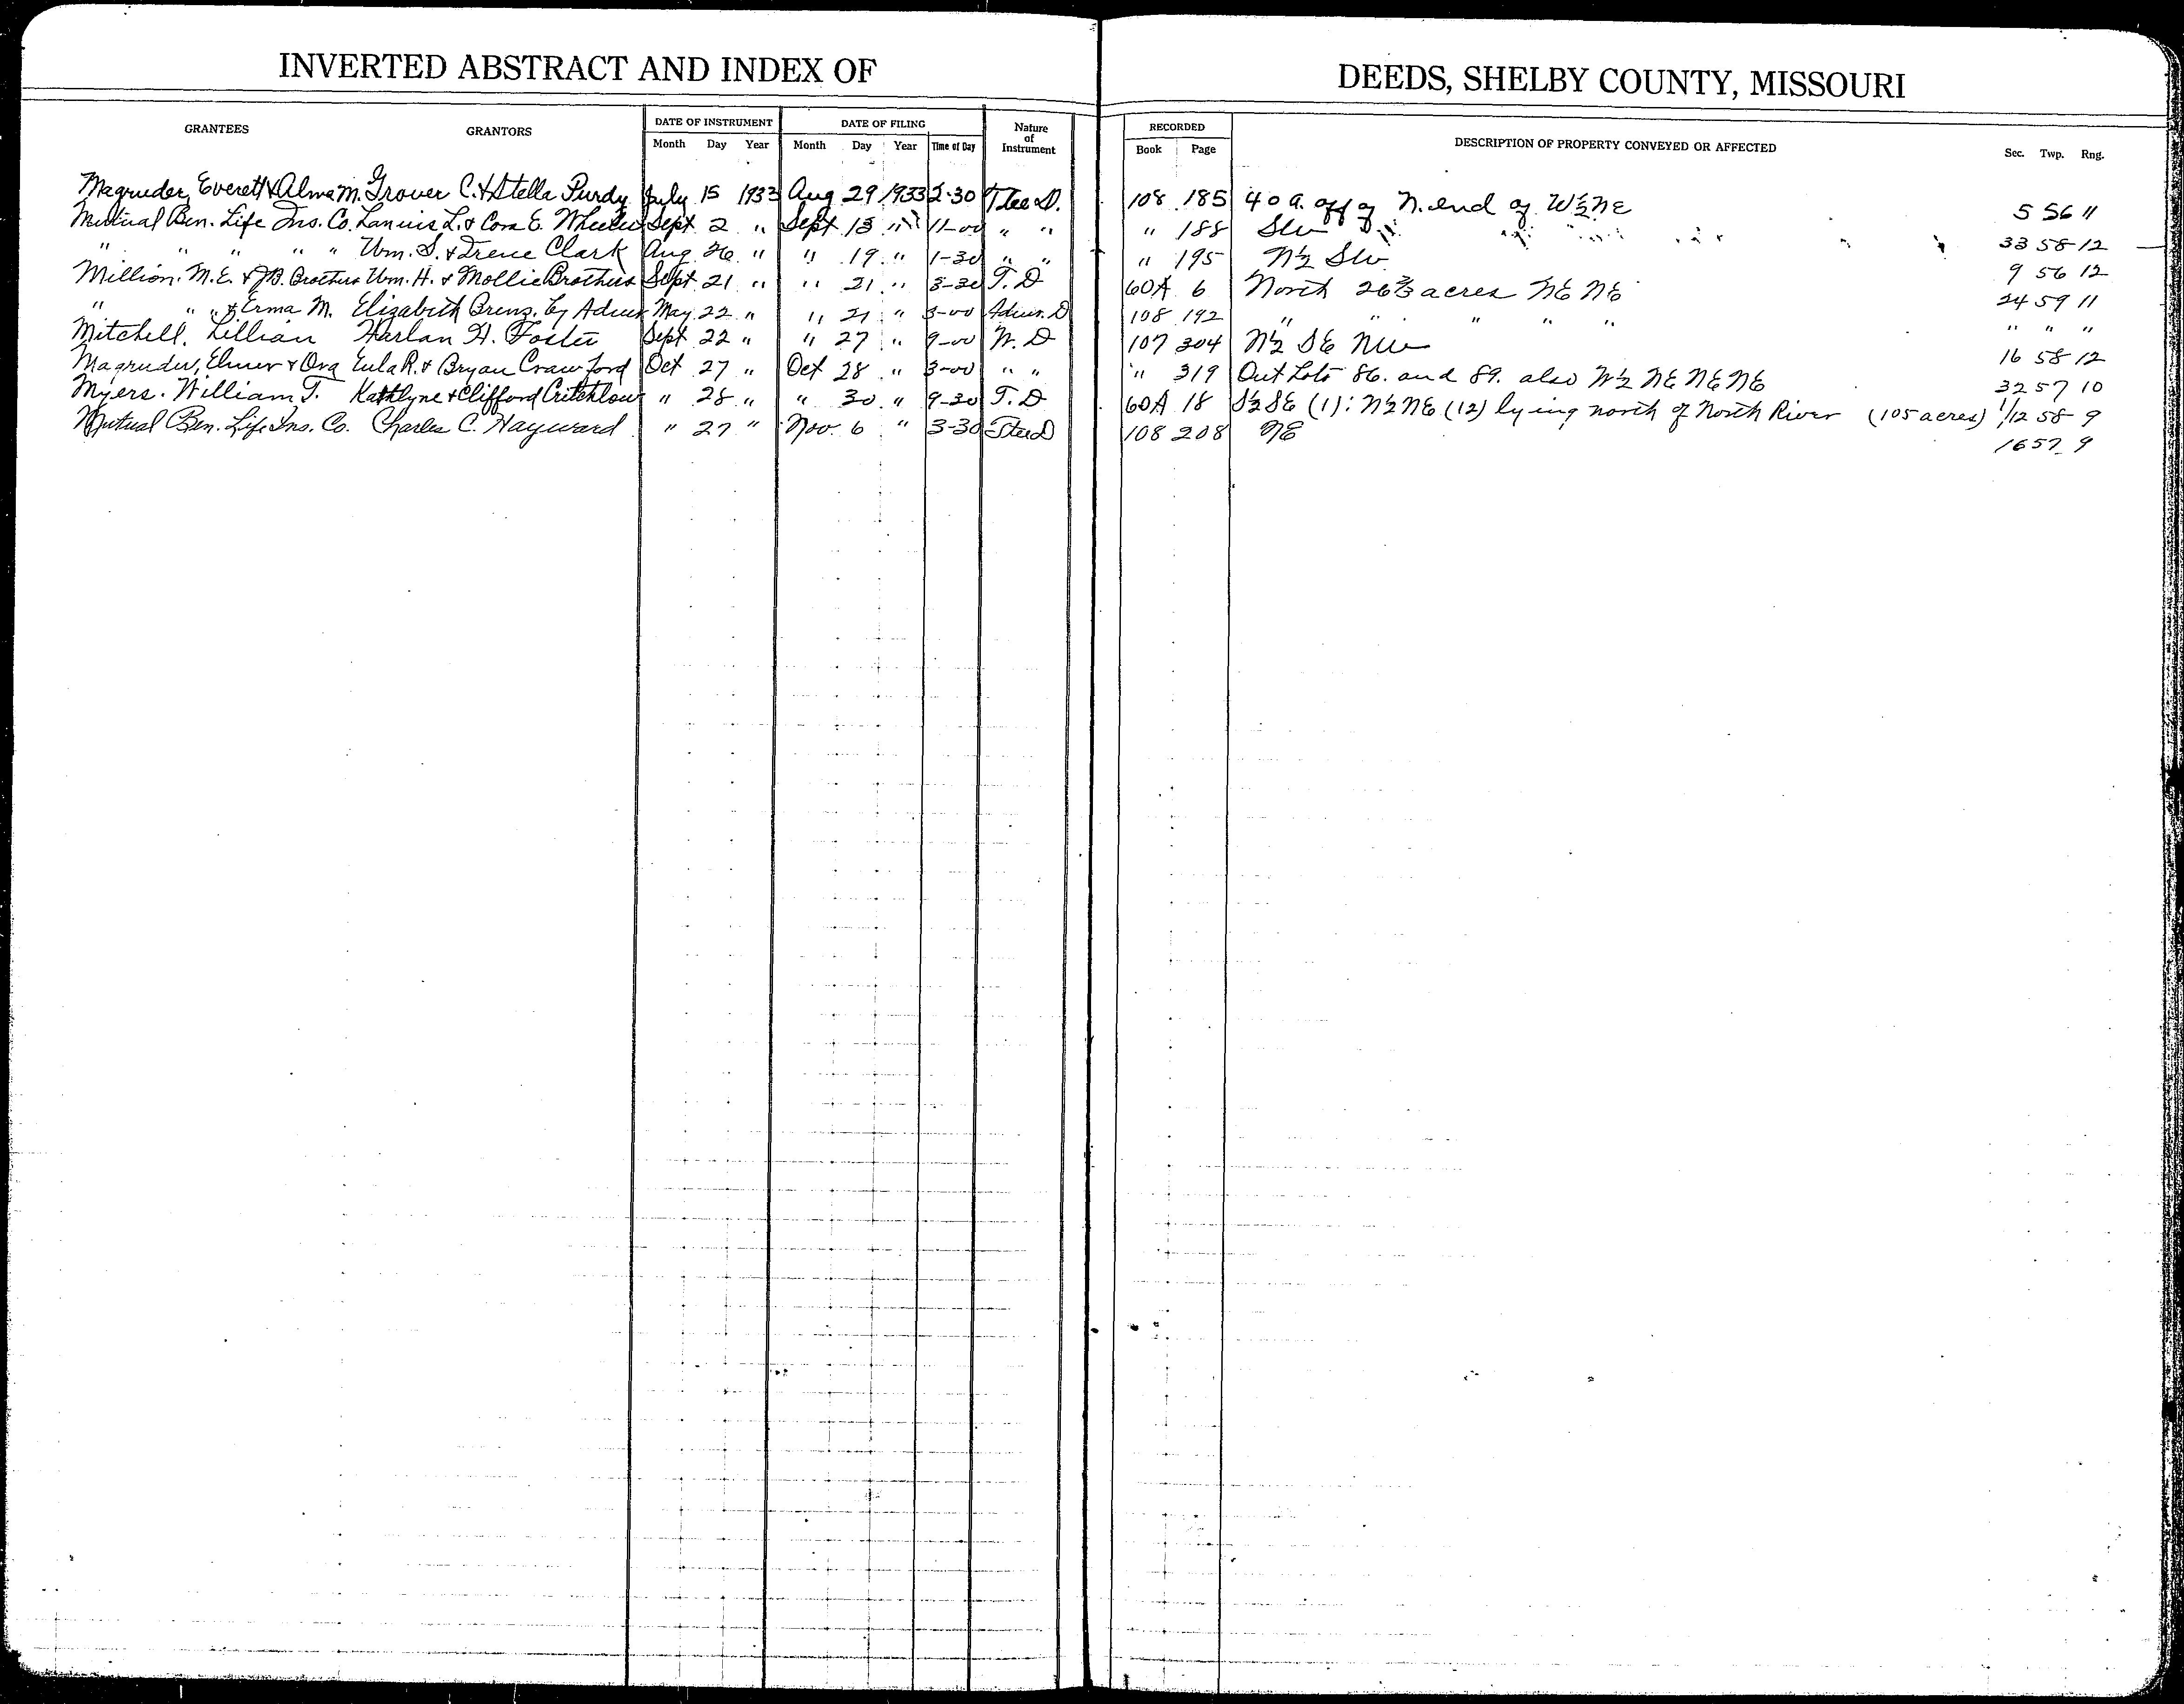 INVERTED ABSTRACT AND INDEX OF DEEDS, SHELBY COUNTY, MISSOURI
GRANTEES GRANTORS DATE OF INSTRUMENT DATE OF FILING Nature of Instrument RECORDED DESCRIPTION OF PROPERTY CONVEYED OR AFFECTED Sec. Twp. Rng.
Month Day Year Month Day Year Time of Day Book Page
Magruder, Everett & Alma M. Grover C. & Stella Purdy July 15 1933 Aug 29 1933 2-30 Tlee D. 108 185 40 a. off of N. end of W½NE 5 56 11
Mutual Ben. Life Ins. Co. L. & Cora E. Wheeler Sept. 2 " Sept. 13 " 11-00 " " " 188 SW 33 58 12
" " " " " Wm. S. & Irene Clark Aug. 26 " " 19 " 1-30 " " " 195 N½ SW 9 56 12
Million. M.E. & J.B. Brothers Wm. H. & Mollie Brothers Sept. 21 " " 21 " 3-30 T. D 60A 6 North 26⅔ acres NE NE 24 59 11
" " & Erma M. Elizabeth by Admr May 22 " " 21 " 3-00 Admr. D 108 192 " " " " " " " "
Mitchell. Lillian Harlan H. Foster Sept 22 " " 27 " 9-00 W. D 107 304 N½ SE NW 16 58 12
Magruder, Elmer & Ora Eula R. & Bryan Crawford Oct 27 " Oct 28 " 3-00 " " " 319 Out Lots 86. and 89. also W½ NE NE NE 32 57 10
Myers. William T. Kathlyne & Clifford Critchlow " 28 " " 30 " 9-30 T. D 60A 18 S½ SE (1): N½ NE (12) lying north of North River (105 acres) 1/12 58 9
Mutual Ben. Life Ins. Co. Charles C. Hayward " 27 " Nov. 6 " 3-30 Tlee D 108 208 NE 16 57 9